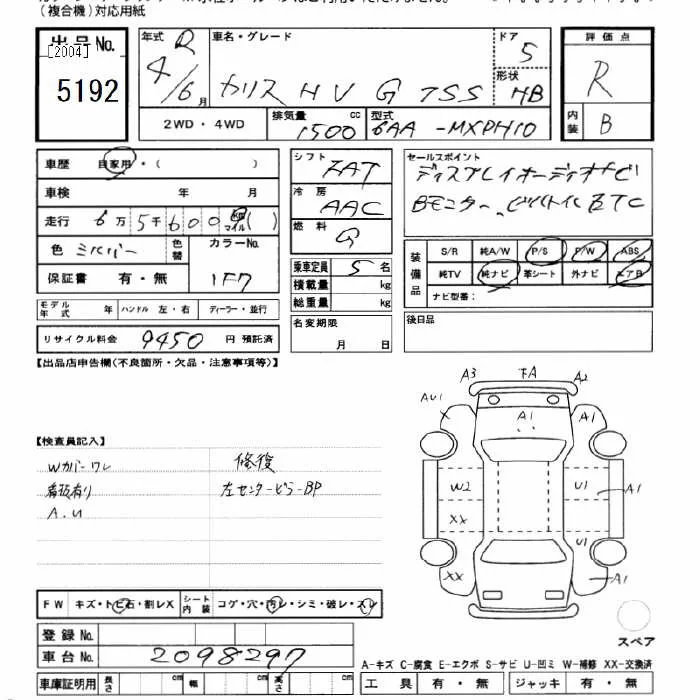 (複合機)対応用紙
出品No.
[2004]
5192
年式 R 4/6月
車名・グレード
ヤリス HV G TSS
ドア 5
形状 HB
2WD・4WD
排気量 1500 cc
型式 6AA-MXPH10
評価点
R
内装 B
車歴 自家用・( )
車検 年 月
走行 6万5千600 km マイル( )
色 シルバー 色替 カラーNo.
1F7
保証書 有・無
モデル年式 年 ハンドル 左・右 ディーラー・並行
リサイクル料金 9450 円 預託済
シフト FAT
冷房 AAC
燃料 G
乗車定員 5名
積載量 kg
総重量 kg
名変期限
月 日
セールスポイント
ディスプレイオーディオナビ
Bモニター、ETC
装備品
S/R 純A/W P/S P/W ABS
純TV 純ナビ 革シート 外ナビ エアB
ナビ型番:
後日品
【出品店申告欄(不良箇所・欠品・注意事項等)】
【検査員記入】
Wカバーワレ 修復
看板有り 左センターピラーBP
A.U
A3 下A A2
AU1
A A1
W2 U1 A1
XX
U1
XX A1
スペア
FW キズ・トビ石・割レX
シート内装 コゲ・穴・汚レ・シミ・破レ・スレ
登録No.
車台No. 2098297
車庫証明用 長さ cm 幅 cm 高さ cm
A-キズ C-腐食 E-エクボ S-サビ U-凹ミ W-補修 XX-交換済
工具 有・無 ジャッキ 有・無